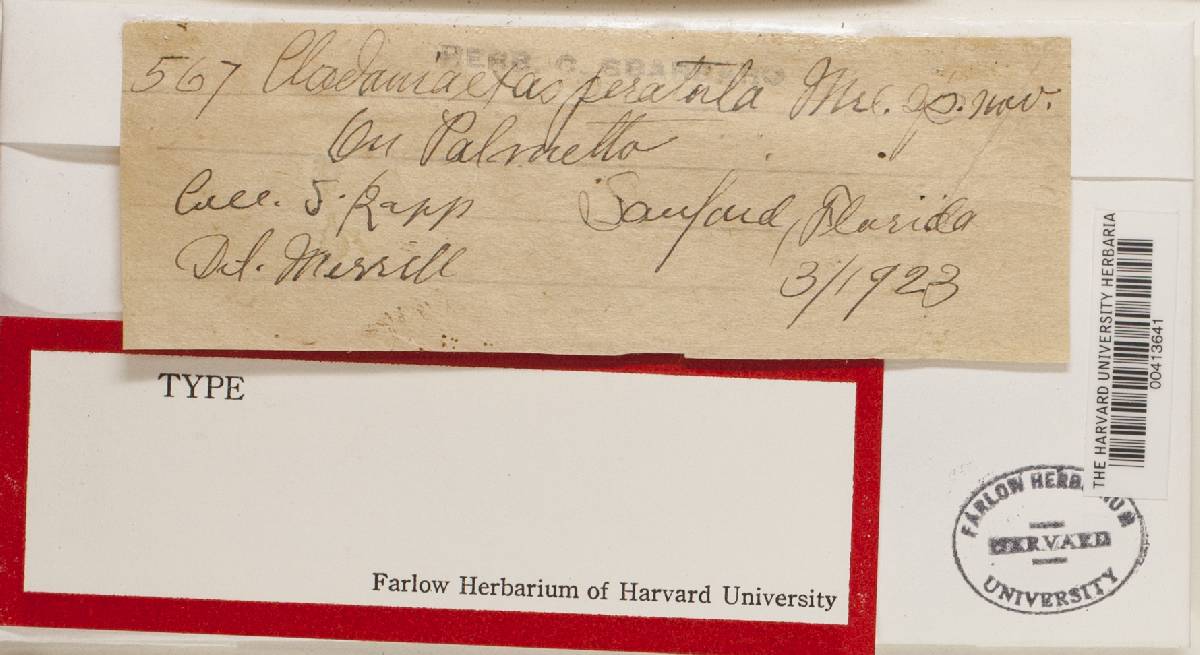 567 Cladonia exasperatula Mrl. sp. nov.
On Palmetto
Coll. S. Rapp Sanford, Florida
Det. Merrill
3/1923
TYPE
Farlow Herbarium of Harvard University
THE HARVARD UNIVERSITY HERBARIA
00413641
FARLOW HERBARIUM
HARVARD
UNIVERSITY